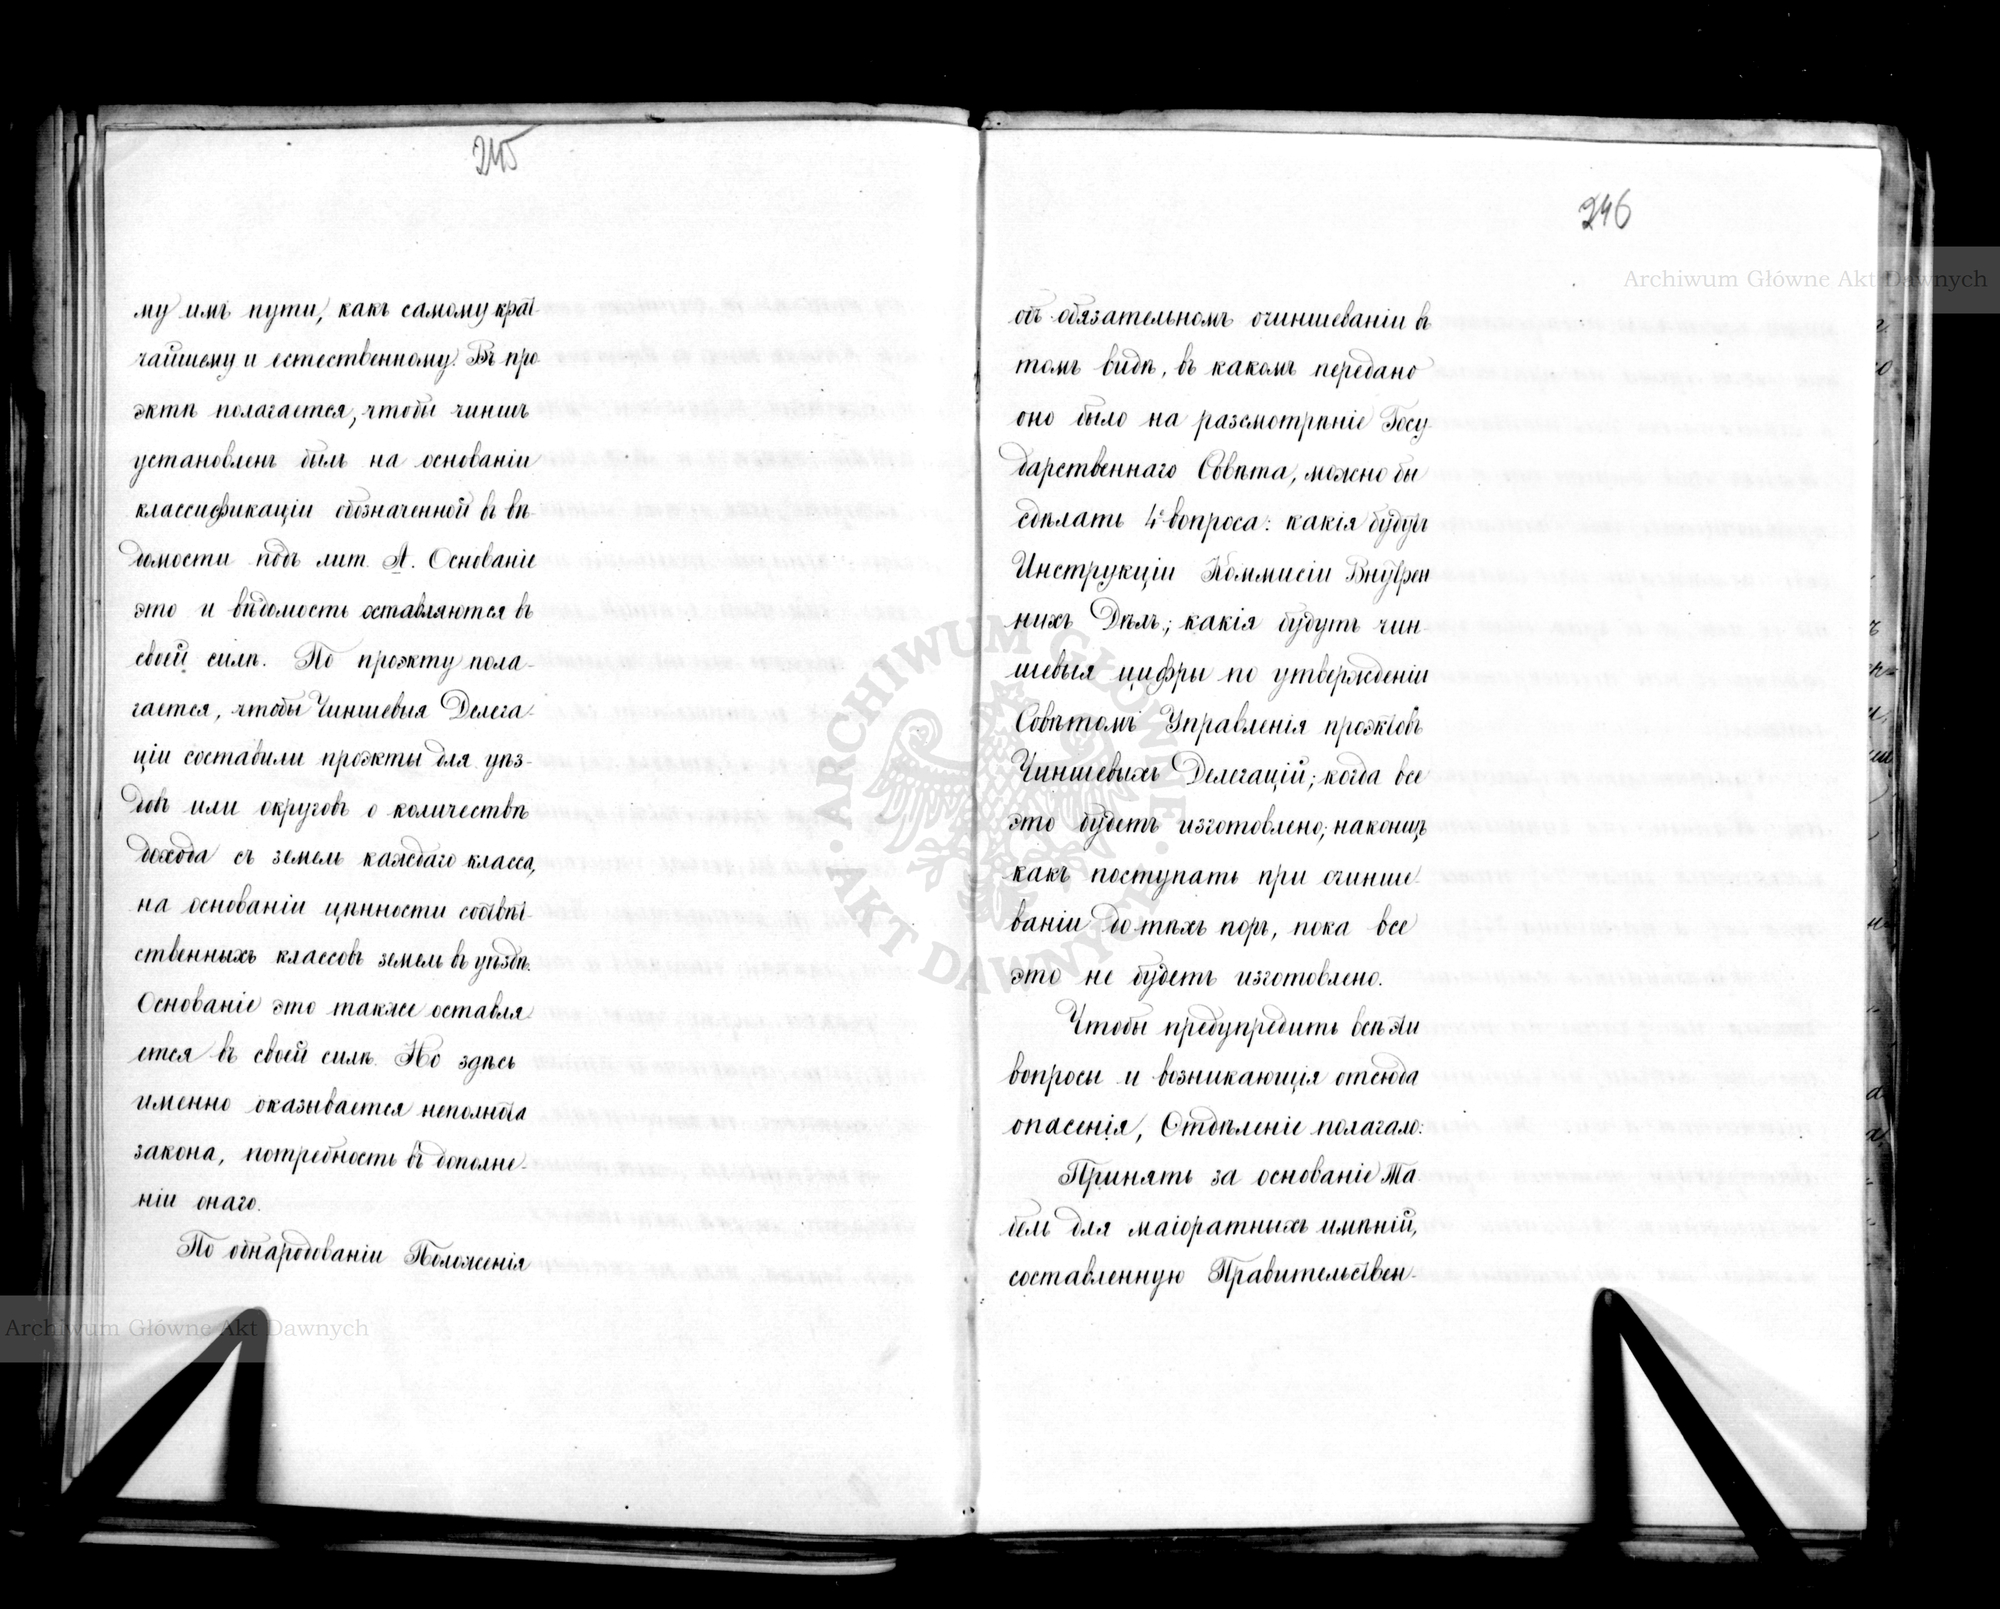 245
му имъ пути, какъ самому крат-
чайшему и естественному. Въ про
эктѣ полагается, чтобы чиншъ
установленъ былъ на основаніи
классификаціи обозначенной въ вѣ-
домости подъ лит. А. Основаніе
это и вѣдомость оставляются въ
своей силѣ. По проэкту пола-
гается, чтобы Чиншевыя Делега-
ціи составили проэкты для уѣз-
довъ или округовъ о количествѣ
дохода съ земель каждаго класса,
на основаніи цѣнности соотвѣт-
ственныхъ классовъ земель въ уѣздѣ.
Основаніе это также оставля-
ется въ своей силѣ. Но здѣсь
именно оказывается неполнота
закона, потребность въ дополне-
ніи онаго.
По обнародованіи Положенія
246
объ обязательномъ очиншеваніи въ
томъ видѣ, въ какомъ передано
оно было на разсмотрѣніе Госу-
дарственнаго Совѣта, можно бы
сдѣлать 4 вопроса: какія будутъ
Инструкціи Коммисіи Внутрен
нихъ Дѣлъ; какія будутъ чин-
шевыя цифры по утвержденіи
Совѣтомъ Управленія проэктовъ
Чиншевыхъ Делегацій; когда все
это будетъ изготовлено; наконецъ
какъ поступать при очинше-
ваніи до тѣхъ поръ, пока все
это не будетъ изготовлено.
Чтобы предупредить всѣ эти
вопросы и возникающія отсюда
опасенія, Отдѣленіе полагало:
Принять за основаніе Та
бель для маіоратныхъ имѣній,
составленную Правительствен-
Archiwum Główne Akt Dawnych
Archiwum Główne Akt Dawnych
ARCHIWUM GŁÓWNE AKT DAWNYCH